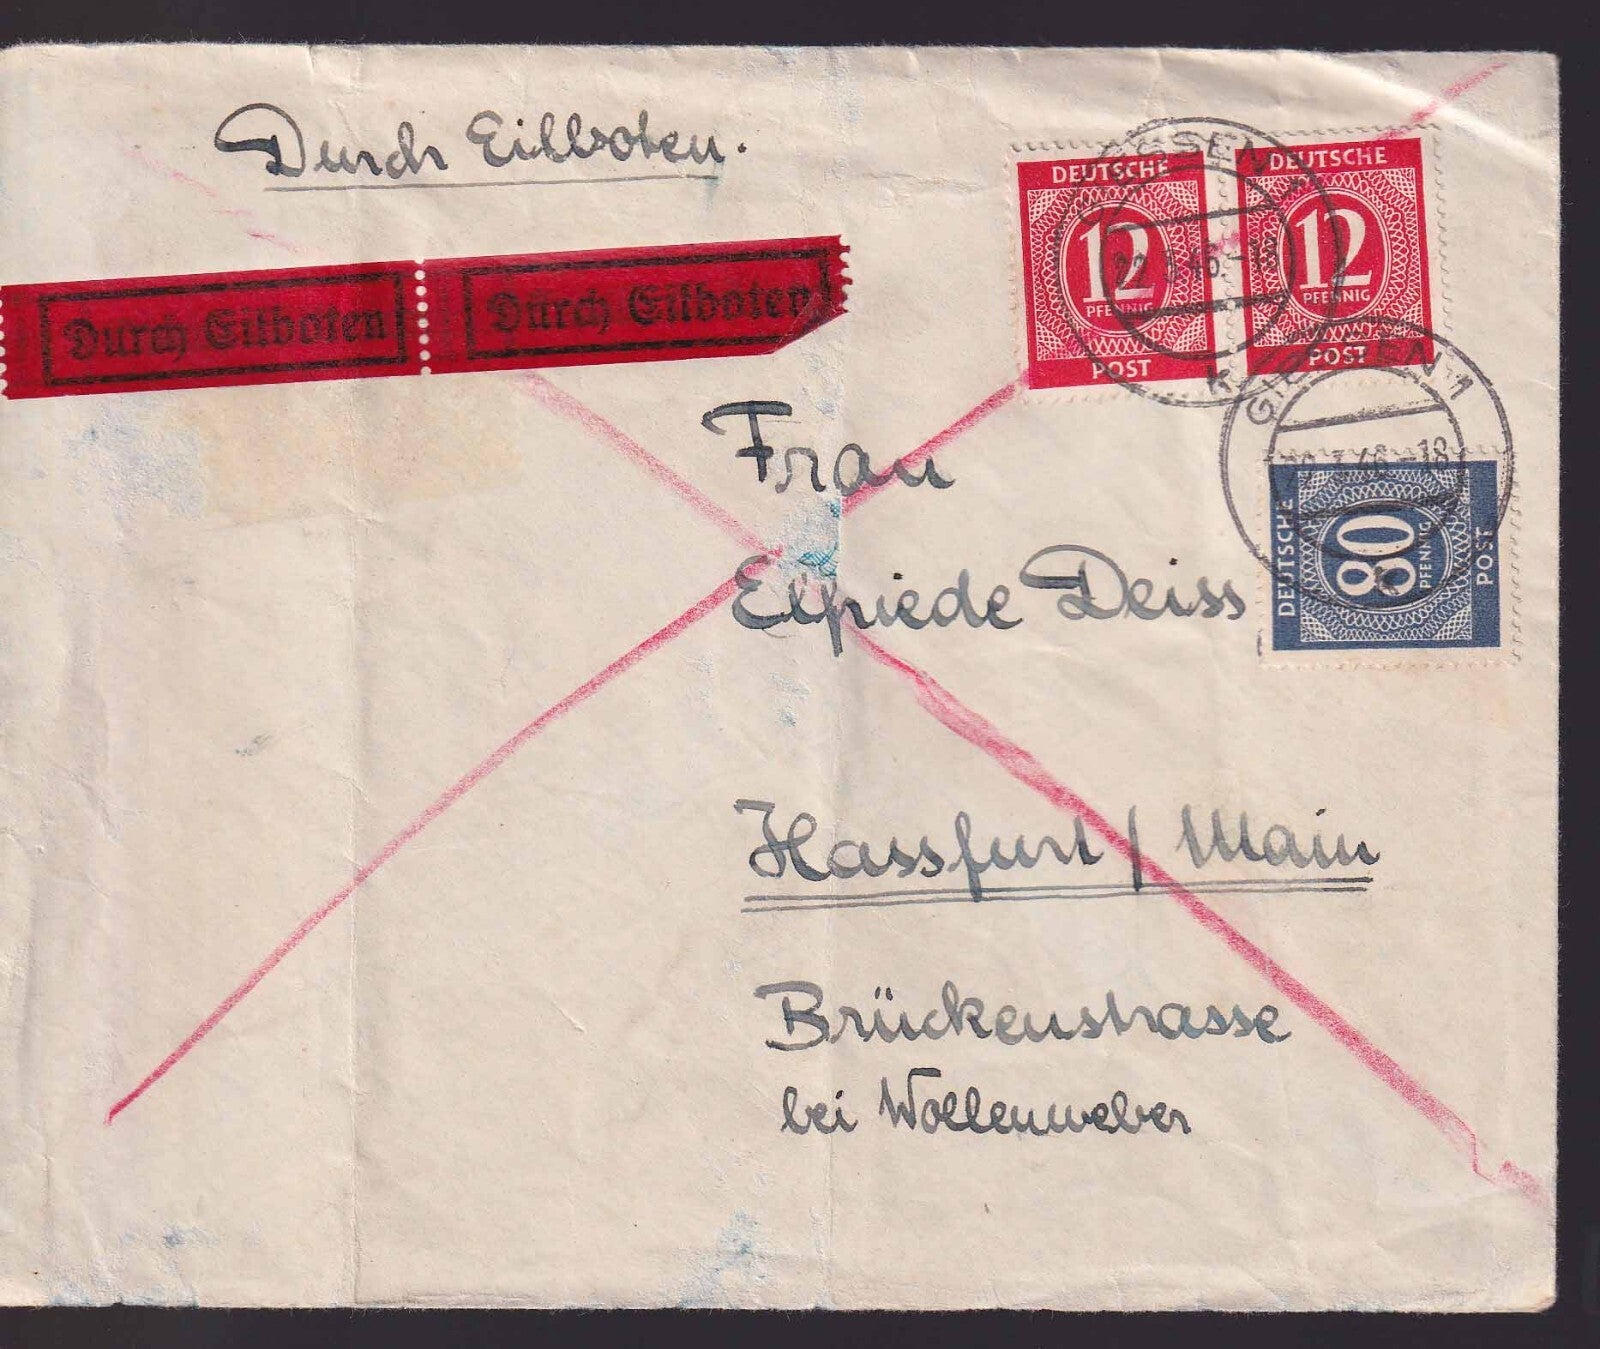 Durch Eilboten.
Durch Eilboten
Durch Eilboten
DEUTSCHE
12
PFENNIG
POST
DEUTSCHE
12
PFENNIG
POST
GIESSEN 1
DEUTSCHE
80
PFENNIG
POST
Frau
Elfriede Deiss
Hassfurt / Main
Brückenstrasse
bei Wollenweber